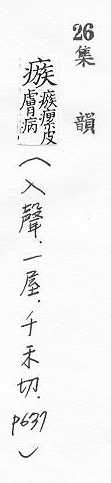 26
集韻
瘯瘯瘰皮膚病(入聲.一屋.千禾切.P637)